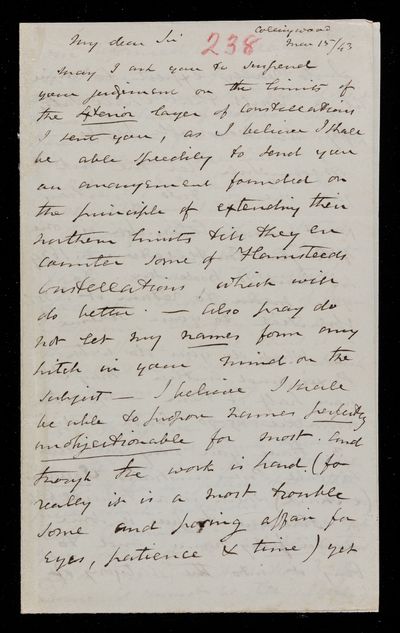 Collingwood
My dear Sir 238 Mar 15/43
May I ask you to suspend
your judgment on the limits of
the exterior layer of Constellations
I sent you, as I believe I shall
be able speedily to send you
an arrangement founded on
the principle of extending their
northern limits till they en
counter some of Flamsteeds
Constellations, which will
do better. — Also pray do
not let my names form any
hitch in your mind on the
subject — I believe I shall
be able to propose names perfectly
unobjectionable for most. And
though the work is hard. (for
really it is a most trouble
some and poring affair for
eyes, patience & time) yet